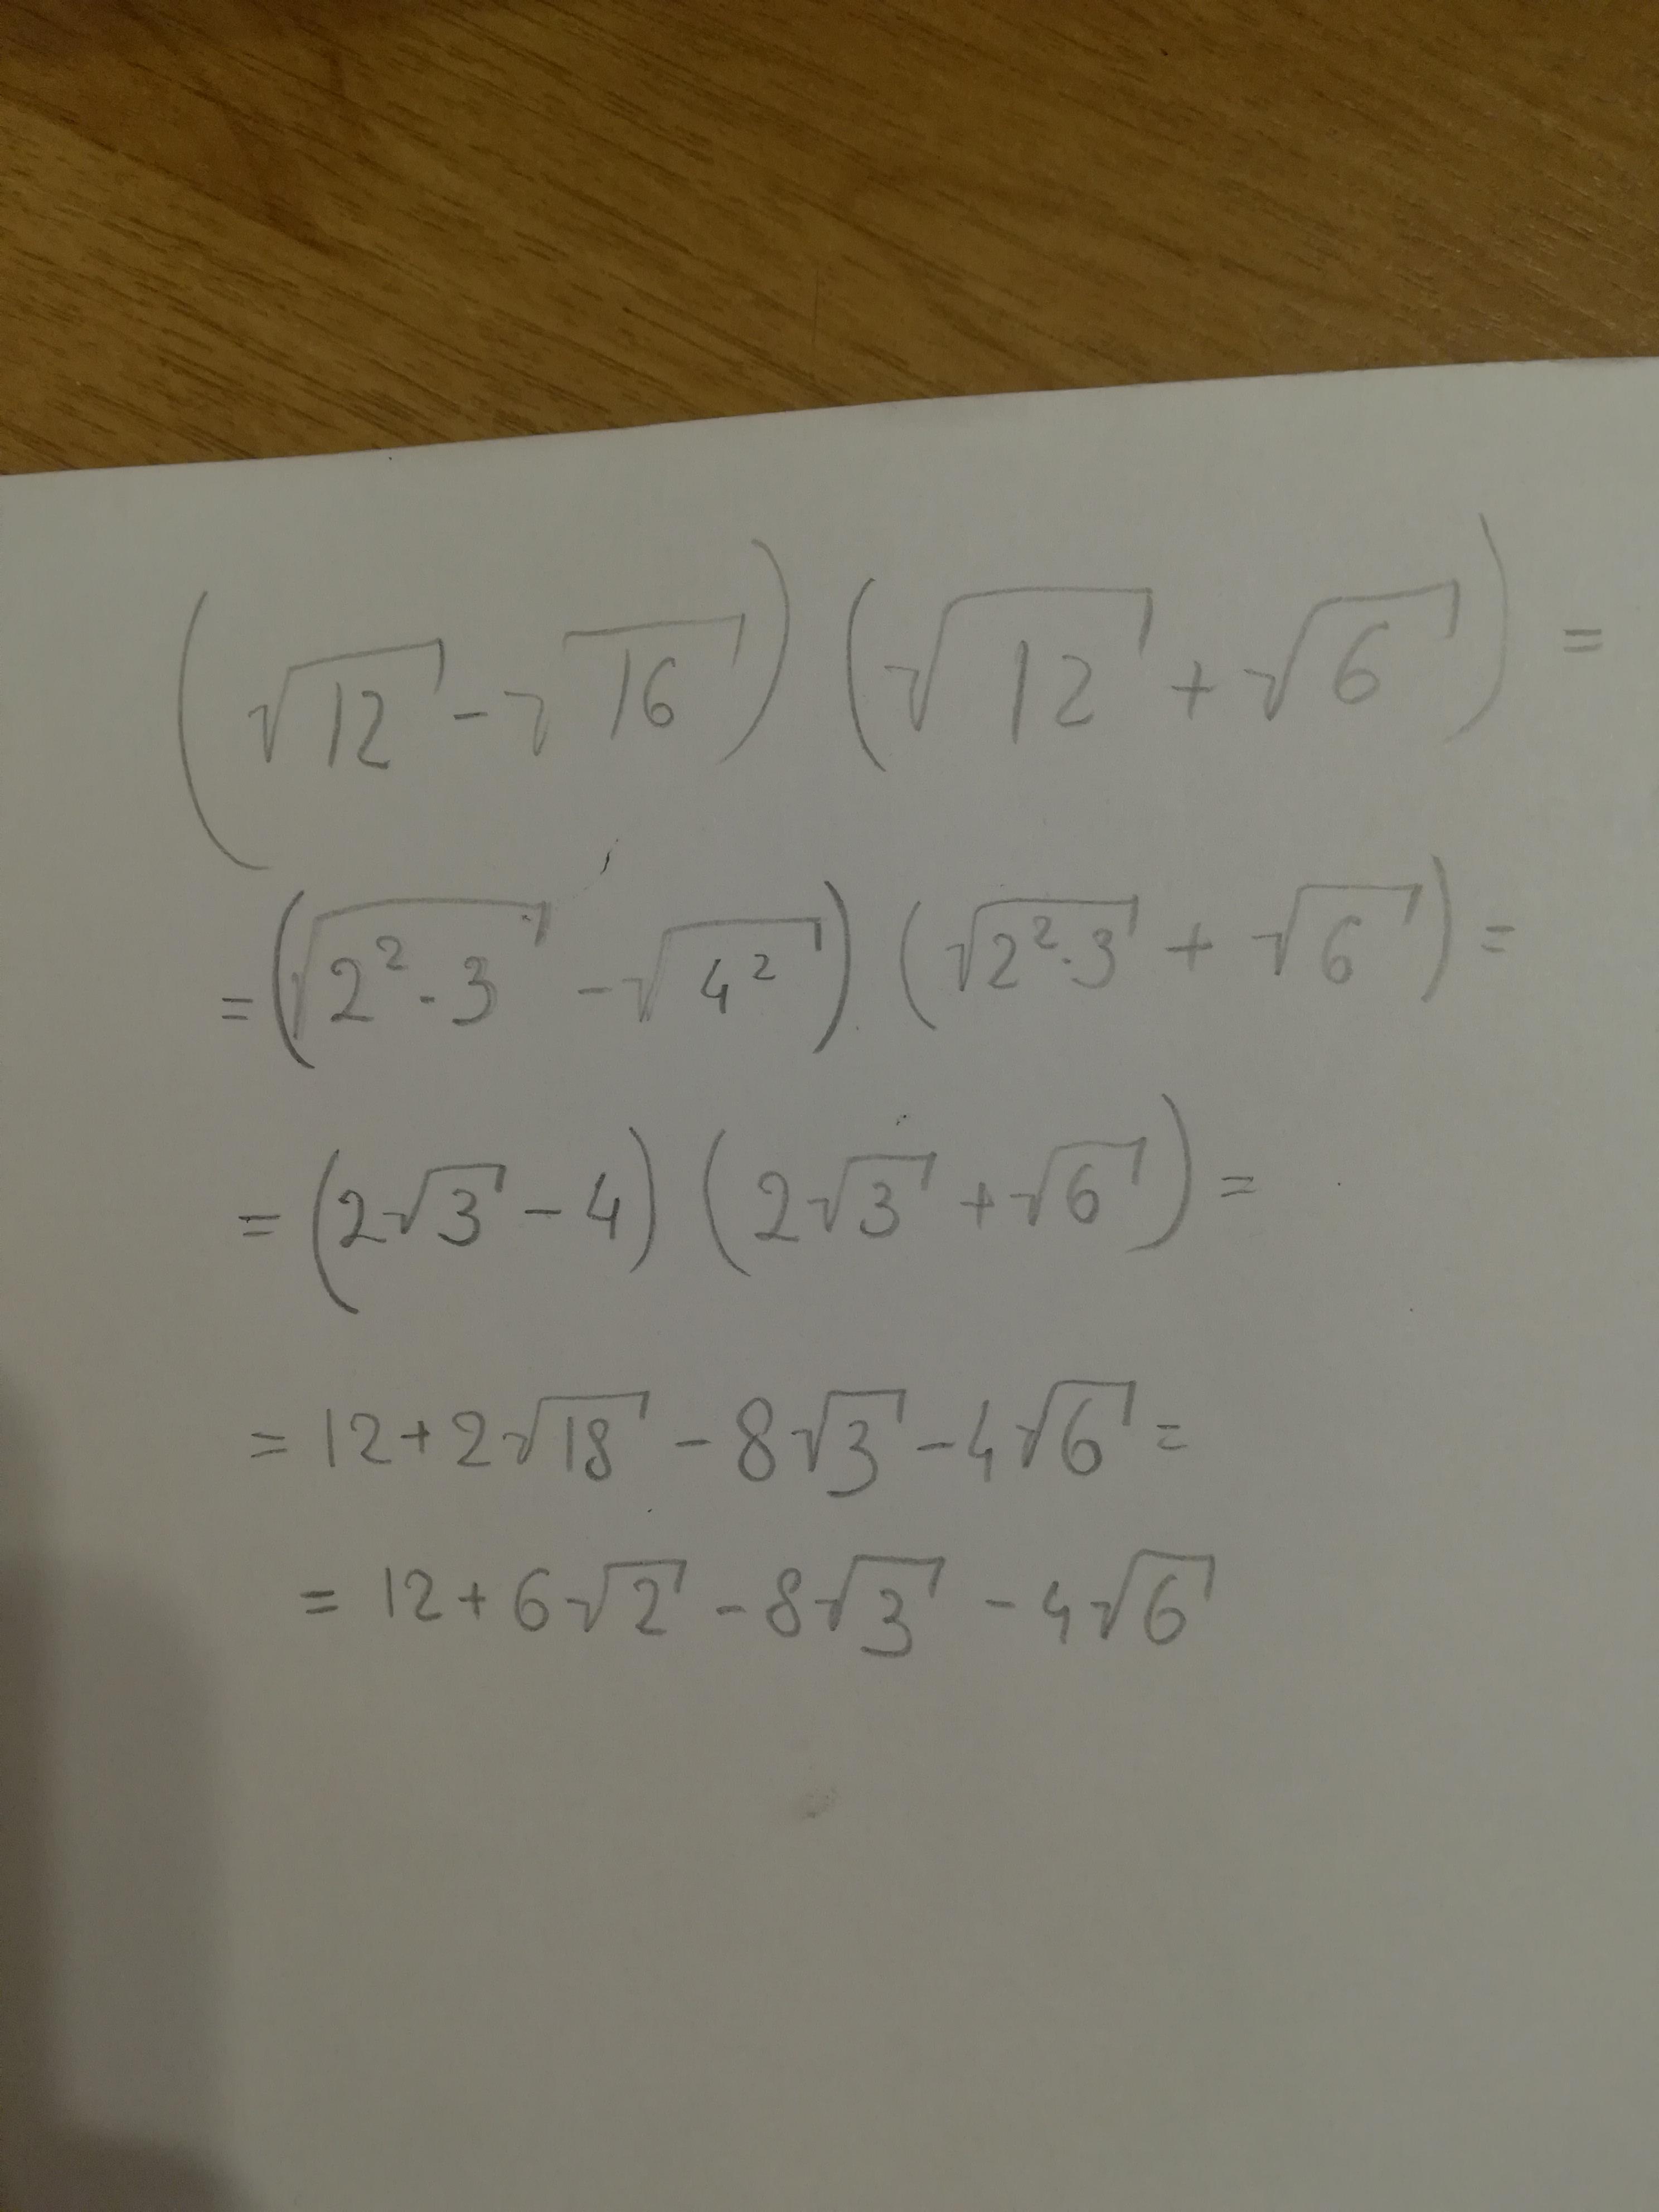 (√12 - √16) (√12 + √6) =
= (√2² · 3 - √4²) · (√2² · 3 + √6) =
= (2√3 - 4) (2√3 + √6) =
= 12 + 2√18 - 8√3 - 4√6 =
= 12 + 6√2 - 8√3 - 4√6